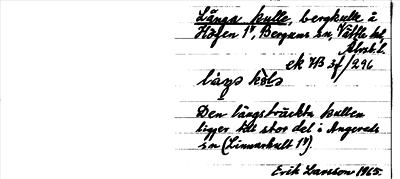 Långa kulle, bergkulle å
Höjen 1⁴, Bergums sn, Vättle hd,
Älvsb. l.
ek 7B 3f/296
Den långsträckta kullen
ligger till stor del i Angereds
sn (Linnarhult 1⁴).
Erik Larsson 1965.